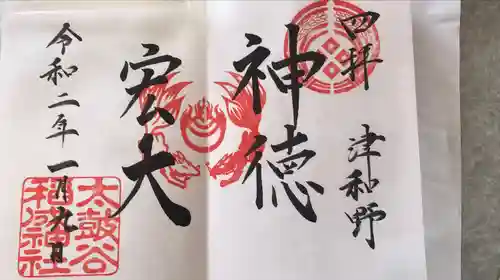 四拝
津和野
神徳
宏大
令和二年一月九日
太皷谷
稲成神社